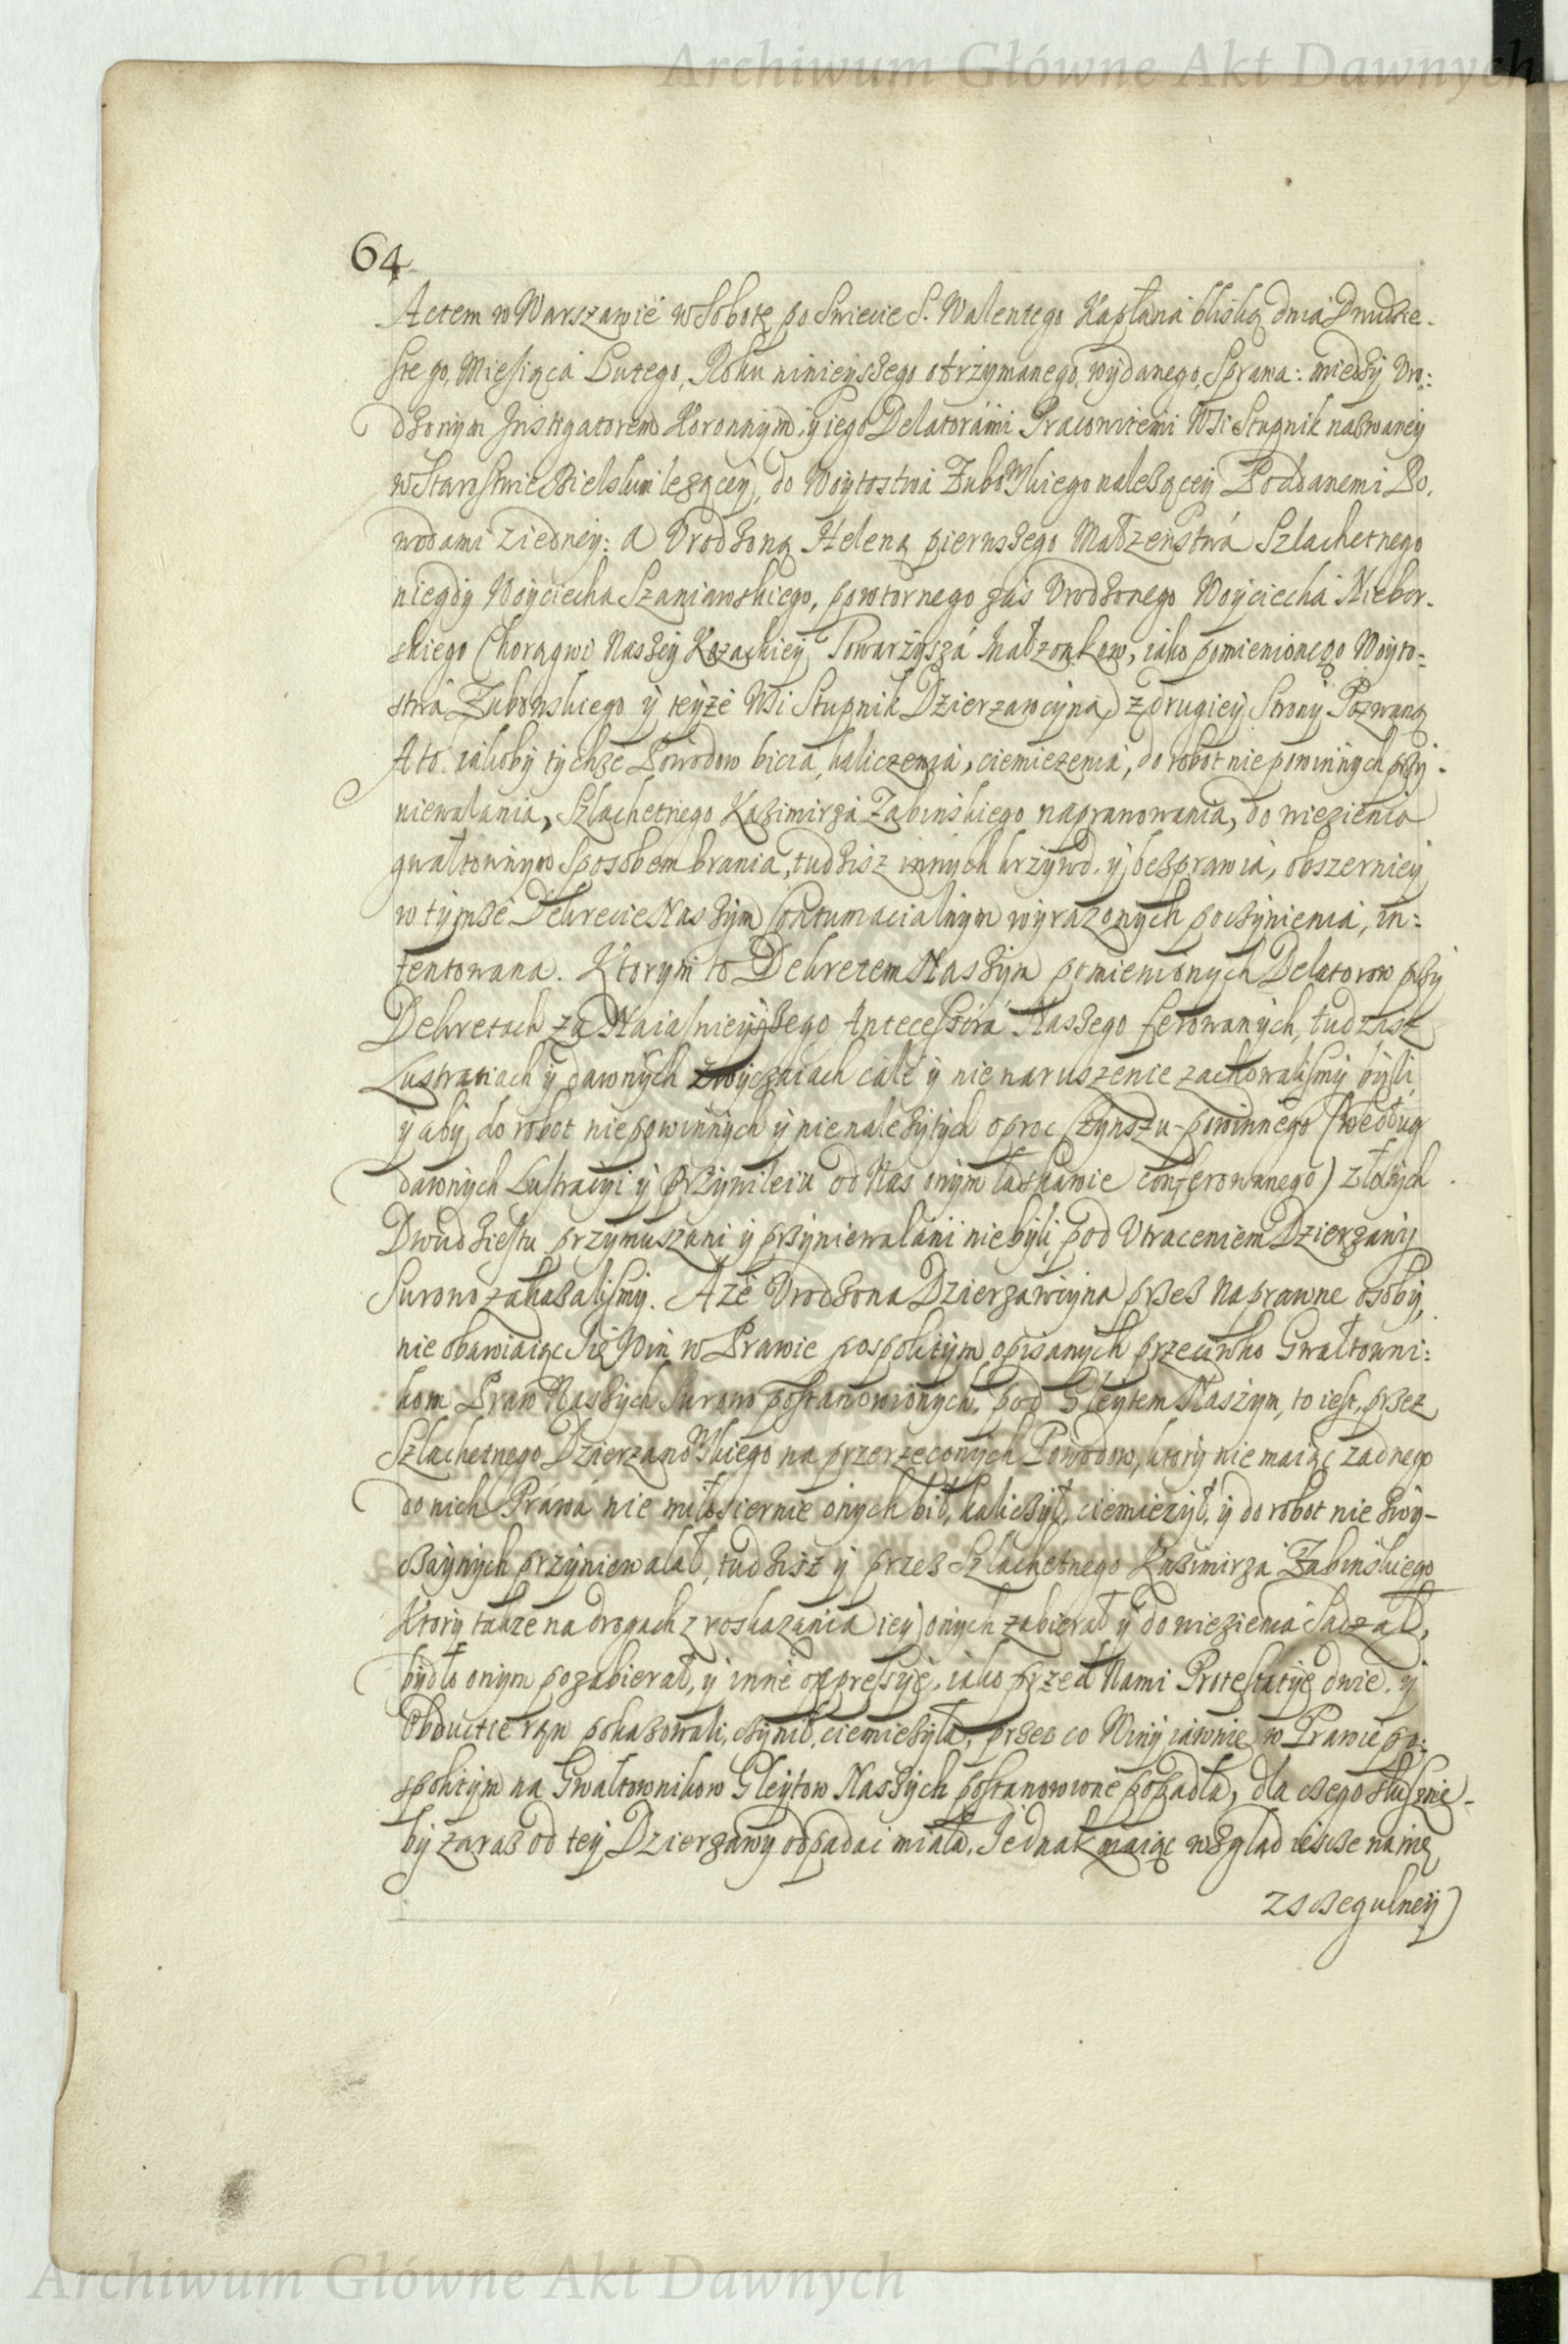 Archiwum Główne Akt Dawnych
64
Actem w Warszawie w Sobotę po Swiecie S. Walentego Kapłana bliską dnia Dwudzie-
stego, Miesiąca Lutego, Roku ninieyszego otrzymanego, wydanego, Sprawa: miedzy Vro:
dzonym Instigatorem Koronnym, y iego Delatorami Pracowitemi Wsi Stupnik nazwaney
w Starostwie Bielskim lezącey, do Woytostwa Zubowskiego nalezącey Poddanemi Po,
wodami z iedney: a Vrodzoną Heleną pierwszego Małzenstwa Szlachetnego
niegdy Woyciecha Szaniawskiego, powtornego zas Vrodzonego Woyciecha Niebor-
skiego Chorągwi Naszey Kozackiey Towarzysza Małzonkow, iako pomienionego Woyto-
stwa Zubowskiego y teyze Wsi Stupnik Dzierzawcyną z drugiey Strony Pozwaną
A to iakoby tychze Powodow bicia, kaliczenia, ciemiezenia, do robot niepowinnych przy-
niewalania, Szlachetnego Kazimirza Zabinskiego naprawowania, do wiezienia
gwałtownym Sposobem brania, tudzisz innych krzywd, y bezprawia, obszerniey
w tymze Dekrecie Naszym Contumacialnym wyrazonych poczynienia, in-
tentowana. Ktorym to Dekretem Naszym pomienionych Delatorow przy
Dekretach za Naiasnieyszego Antecessora Naszego ferowanych, tudzasz
Lustraciach y dawnych zwyczaiach cale y nienaruszenie zachowalismy byli,
y aby do robot niepowinnych y nienalezytych oproc Czynszu powinnego (według
dawnych Lustracyi y Przywileiu od Nas onym łaskawie conferowanego) złotych
Dwudziestu przymuszani y przyniewalani niebyli, pod Vtraceniem Dzierzawy
Surowo zakazalismy. Aże Vrodzona Dzierzawcyna przes naprawne osoby,
nie obawiaiąc Się Win w Prawie pospolitym opisanych przeciwko Gwałtowni:
kom Praw Naszych Surowo postanowionych, pod Gleytem Naszym, to iest, przez
Szlachetnego Dzierzanowskiego na przerzeconych Powodow, ktory nie maiąc zadnego
do nich Prawa nie miłosiernie onych bił, kaliczył, ciemiezył, y do robot nie zwy-
czaynych przyniewalał, tudzisz y przes Szlachetnego Kazimirza Zabinskiego
Ktory takze na drogach z roskazania iey onych zabierał y do wiezienia Sadzał,
bydło onym pozabierał, y inne oppressye, iako przed Nami Protestatye dwie, y
Obductie ran pokazowali, czynił, ciemiezyła, przes co Winy iawnie w Prawie po:
spolitym na Gwałtownikow Gleytow Naszych postanowione popadła, dla czego słusznie-
by zaraz od tey Dzierzawy odpadac miała. Jednak maiąc wzgląd iescze na nię
z sczegulney
Archiwum Główne Akt Dawnych